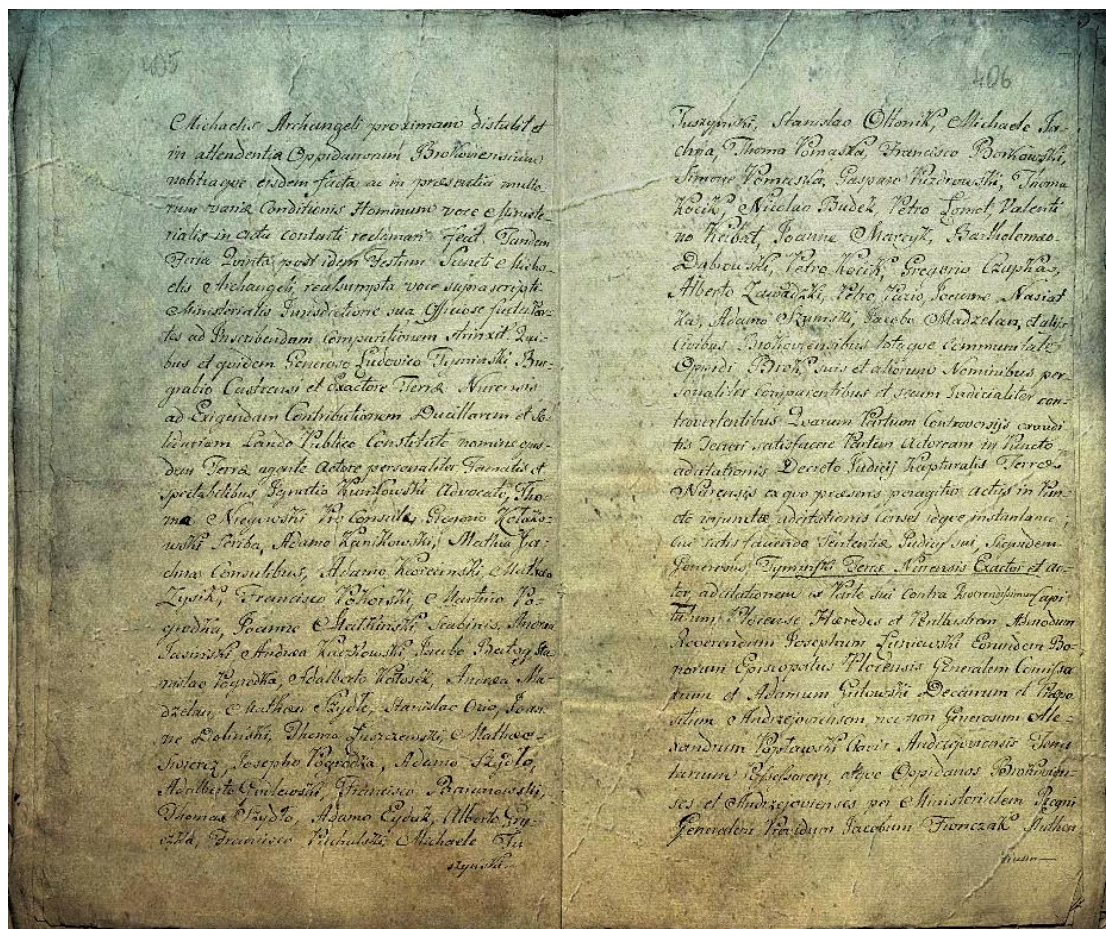 405
Michaelis Archangeli proximam distulit et
in attendentia Oppidanorum Brokoviensium
notitiaque eisdem facta, ac in præsentia multo-
rum variæ Conditionis Hominum voce Ministe-
rialis in actu contenti reclamari fecit. Tandem
Feria Quinta post idem Festum Sancti Micha-
elis Archangeli, reassumpta voce suprascripti
Ministerialis Jurisdictione sua Officiose
tes ad Inscribendam Comparitionem Qui-
bus et quidem Generoso Ludovico Tyminski Bur-
grabio Castrensi et Exactore Terræ Nurensis
ad Exigendam Contributionem Ducillarum et
Laudo Publico Constituto nomine ejus-
dem Terræ agente Actore personaliter, Famatis et
Spectabilibus Ignatio Advocato, Tho-
ma Niegowski Pro Consule, Gregorio
wski Scriba, Adamo Kanikowski, Mathia Ja-
china Consulibus, Adamo Mathæo
Zysik, Francisco Pokorski, Martino Po-
grodka, Joanne Scabinis, Andrea
Jasinski Andrea Kaczkowski Jacobo Sta-
nislao Pogrodka, Adalberto Andrea Ma-
dzelan, Matheo Szydło, Stanislao Joan-
ne Dolinski, Thoma Juszczewski, Mathæo
Josepho Pogrodka, Adamo Szydło,
Adalberto Godlewski, Francisco Baranowski,
Thomas Szydło, Adamo Eyduk, Alberto Gry-
czka, Francisco Michaele Tu
szynski
406
Tuszynski, Stanislao Michaele Ja-
china, Thoma Pomaska, Francisco Borkowski,
Simone Pomaska, Gasparo Thoma
Kocik, Nicolao Budek, Petro Lomot, Valenti
no Joanne Marcyk, Bartholomæo
Dąbrowski, Petro Kocik, Gregorio Czapka,
Alberto Zawadzki, Petro Joanne Nasiat
ka, Adamo Szumski, Jacobo Madzelan, et aliis
Civibus Brokoviensibus totaque Communitate
Oppidi Brok suis et aliorum Nominibus per-
sonaliter comparentibus et secum Judicialiter con-
trovertentibus Quarum Partium Controversijs exaudi
tis satisfacere Partem Actoream in Puncto
adcitationis Decreto Judicij Kapturalis Terræ
Nurensis ex quo præsens peragitur actus in Pun-
cto injunctæ adcitationis censet idque instantanee
satis faciendo Sententiæ Judicij sui, Siquidem
Generosus Tyminski Terræ Nurensis Exactor et ac-
tor, adcitationem ex Parte sui contra Reverendissimum Capi
tulum Plocense, Hæredes et Perillustrem Admodum
Reverendum Josephum Lisniewski Eorundem Bo-
norum Episcopatus Plocensis Generalem Comissa
rium et Adamum Gutowski Decanum et Præpo
situm Andrzejoviensem, nec non Generosum Ale-
xandrum Andrzejoviensis
Possessorem, atque Oppidanos Brokovien-
ses et Andrzejovienses per Ministerialem Regni
Generalem Providum Jacobum Fronczak Authen